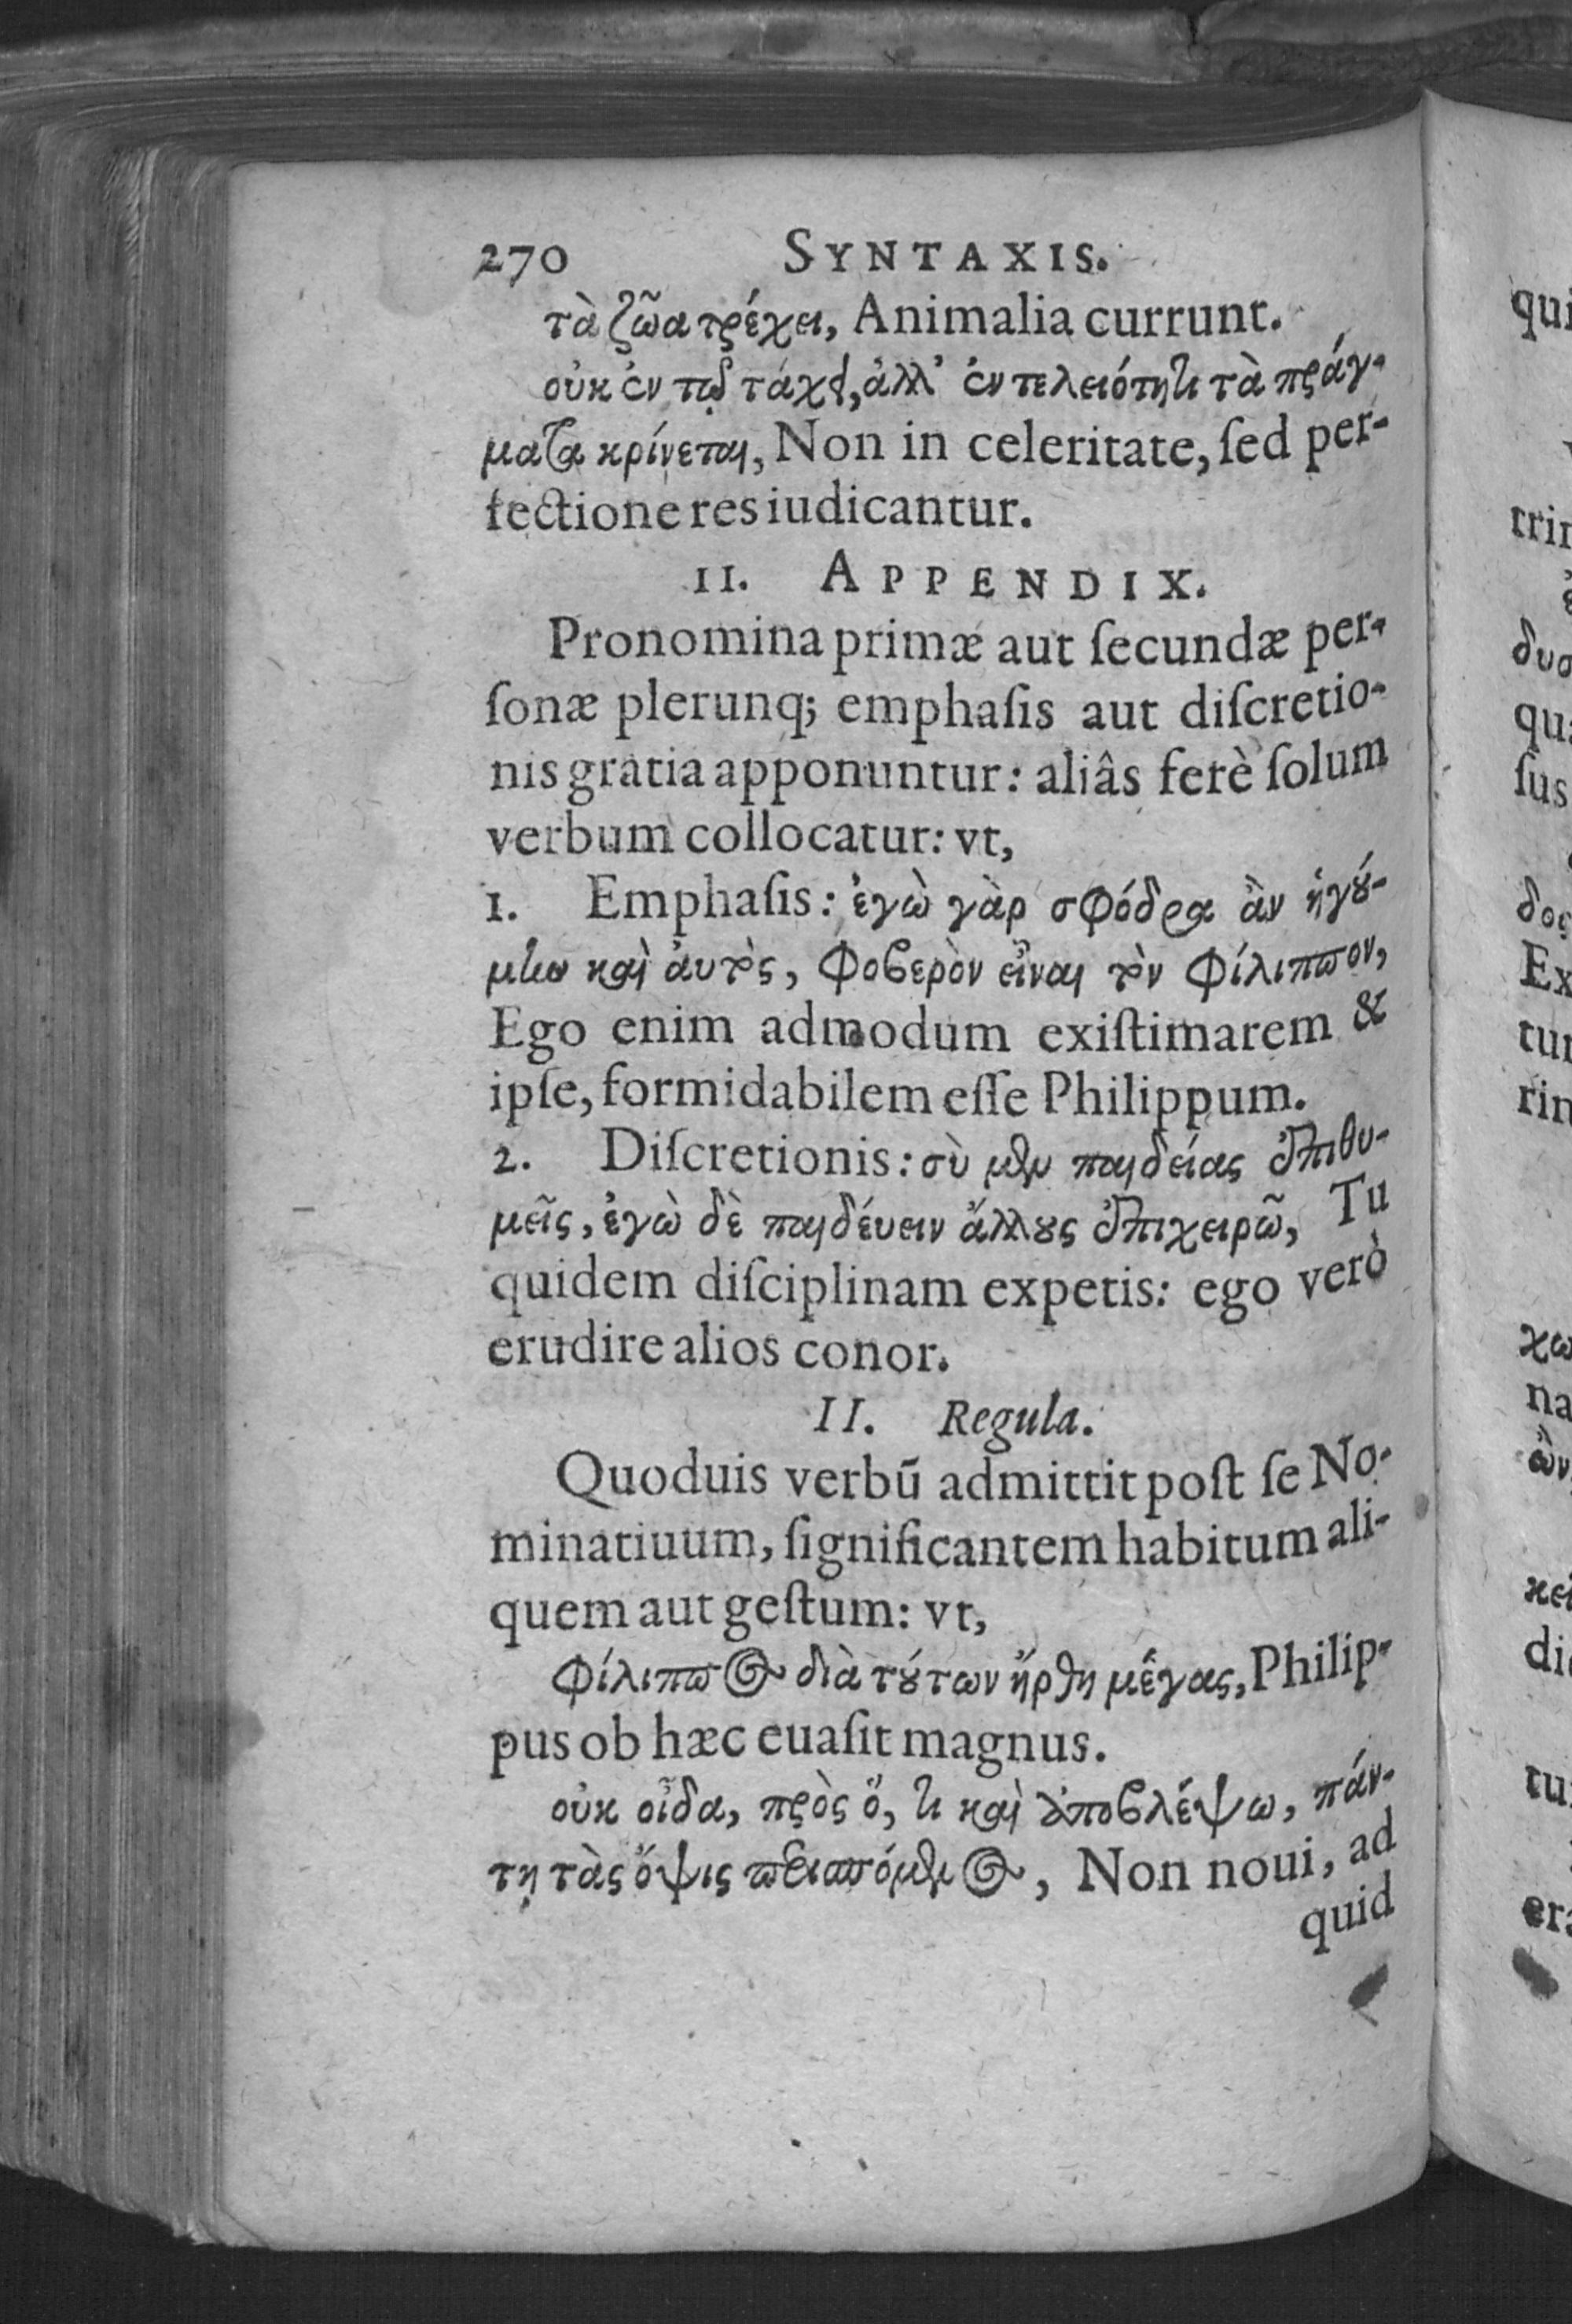 270 SYNTAXIS.
τὰ ζῶα τρέχει, Animalia currunt.
οὐκ ἐν τῷ τάχει, ἀλλ' ἐν τελειότητι τὰ πράγ-
ματα κρίνεται, Non in celeritate, ſed per-
fectione res iudicantur.
II. APPENDIX.
Pronomina primæ aut ſecundæ per-
ſonæ plerunq; emphaſis aut diſcretio-
nis gratia apponuntur: aliâs ferè ſolum
verbum collocatur: vt,
1. Emphaſis: ἐγὼ γὰρ σφόδρα ἂν ἡγού-
μην καὶ ἀυτὸς, φοβερὸν εἶναι τὸν Φίλιππον,
Ego enim admodum exiſtimarem &
ipſe, formidabilem eſſe Philippum.
2. Diſcretionis: σὺ μὲν παιδείας ἐπιθυ-
μεῖς, ἐγὼ δὲ παιδέυειν ἄλλους ἐπιχειρῶ, Tu
quidem diſciplinam expetis: ego verò
erudire alios conor.
II. Regula.
Quoduis verbū admittit poſt ſe No-
minatiuum, ſignificantem habitum ali-
quem aut geſtum: vt,
Φίλιππος διὰ τούτων ἤρθη μέγας, Philip-
pus ob hæc euaſit magnus.
οὐκ οἶδα, πρὸς ὅ, τι καὶ ἀποβλέψω, πάν-
τῃ τὰς ὄψις περιαπόμενος, Non noui, ad
quid
qui
trin
δυσ
qua
ſus
δος
Ex
tur
rin
χω
na
ὢν
κει
di
tu
era